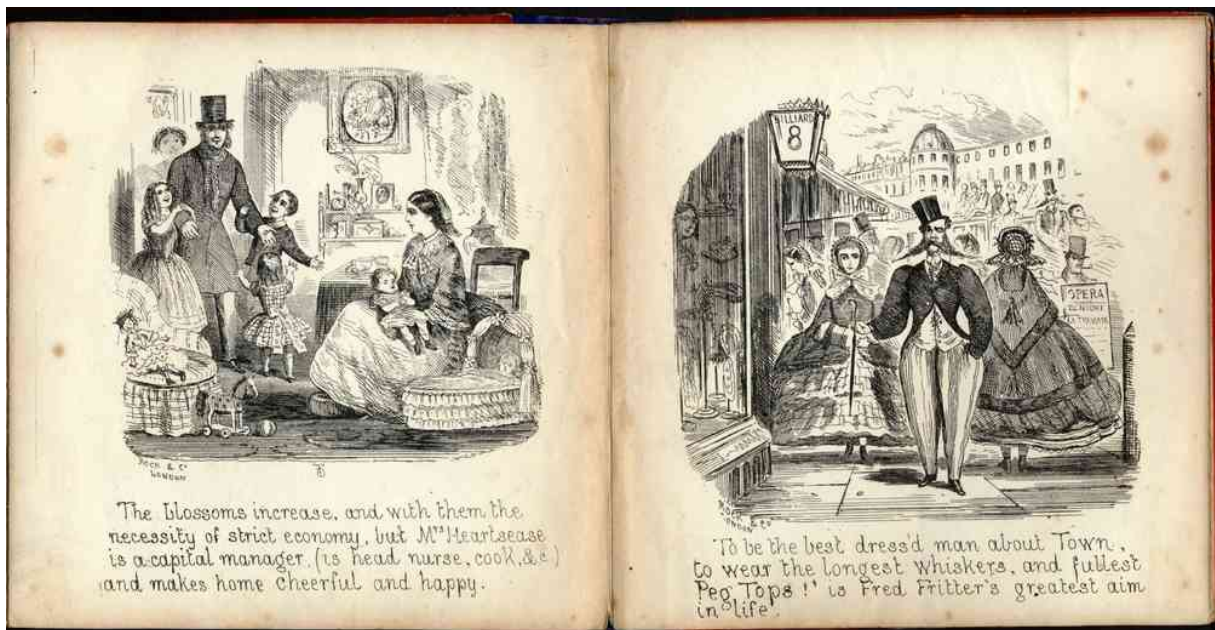 ROCK & Co
LONDON
The blossoms increase, and with them the
necessity of strict economy, but Mrs Heartsease
is a capital manager, (is head nurse, cook, &c)
and makes home cheerful and happy.
BILLIARD
8
OPERA
ROCK & Co
LONDON
To be the best dress'd man about Town,
to wear the longest whiskers, and fullest
Peg Tops!' is Fred Fritter's greatest aim
in life.